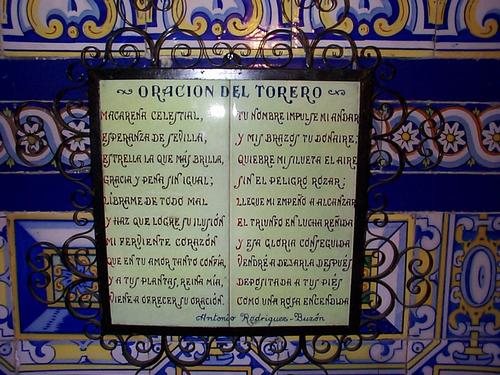 ORACION DEL TORERO
MACARENA CELESTIAL,
ESPERANZA DE SEVILLA,
ESTRELLA LA QUE MÁS BRILLA,
GRACIA Y PENA SIN IGUAL;
LÍBRAME DE TODO MAL
Y HAZ QUE LOGRE SU ILUSIÓN
MI FERVIENTE CORAZÓN
QUE EN TU AMOR TANTO CONFÍA
Y A TUS PLANTAS, REINA MÍA,
VIENE A OFRECER SU ORACIÓN.
TU NOMBRE IMPULSE MI ANDAR
Y MIS BRAZOS TU DONAIRE;
QUIEBRE MI SILUETA EL AIRE
SIN EL PELIGRO ROZAR;
LLEGUE MI EMPEÑO A ALCANZAR
EL TRIUNFO EN LUCHA REÑIDA
Y ESA GLORIA CONSEGUIDA
VENDRÉ A DEJARLA DESPUÉS
DEPOSITADA A TUS PIÉS
COMO UNA ROSA ENCENDIDA
Antonio Rodríguez-Buzón